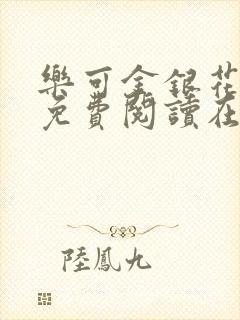 樂可金銀花
免費閱讀在
陸鳳九